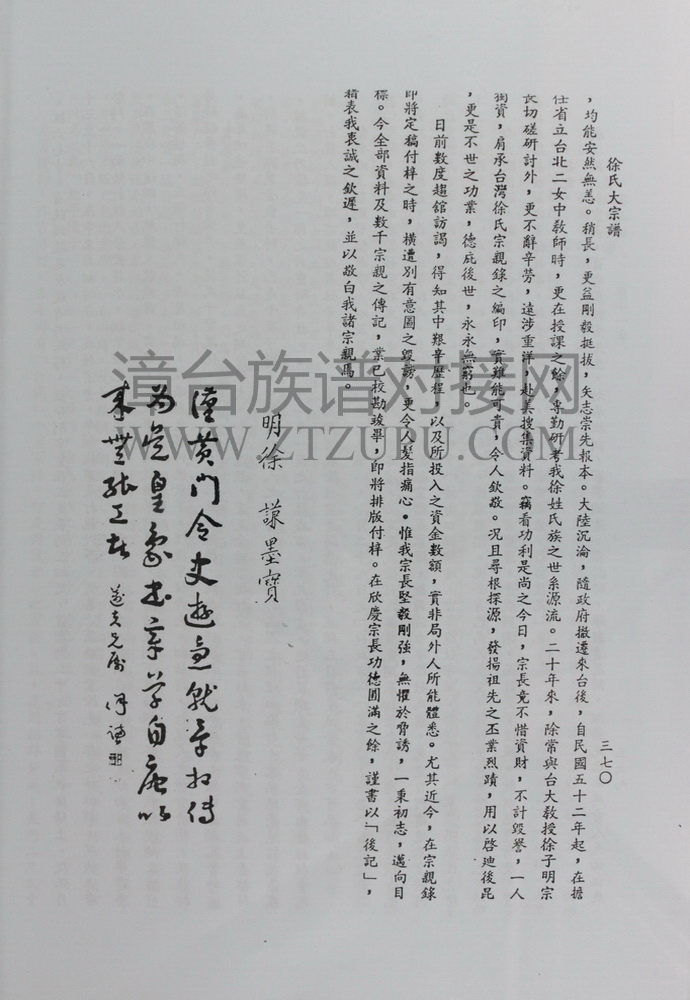 徐氏大宗譜
三七〇
，均能安然無恙。稍長，更益剛毅挺拔，矢志崇先報本。大陸沉淪，隨政府撤遷來台後，自民國五十二年起，在擔
任省立台北二女中教師時，更在授課之餘，專勤研考我徐姓氏族之世系源流。二十年來，除常與台大教授徐子明宗
長切磋研討外，更不辭辛勞，遠涉重洋，赴美搜集資料。竊看功利是尚之今日，宗長竟不惜資財，不計毀譽，一人
獨資，肩承台灣徐氏宗親錄之編印，實難能可貴，令人欽敬。况且尋根探源，發揚祖先之丕業烈蹟，用以啓廸後昆
，更是不世之功業，德庇後世，永永無窮也。
日前數度趨舘訪謁，得知其中艱辛歷程，以及所投入之資金數額，實非局外人所能體悉。尤其近今，在宗親錄
即將定稿付梓之時，橫遭別有意圖之毀謗，更令人髮指痛心。惟我宗長堅毅剛強，無懼於脅誘，一秉初志，邁向目
標。今全部資料及數千宗親之傳記，業已校勘竣畢，即將排版付梓。在欣慶宗長功德圓滿之餘，謹書以「後記」，
藉表我衷誠之欽遲，並以敬白我諸宗親焉。
明徐 謙墨寶
漢黃門令史游急就章相傳
為是皇象書章草自唐以
來無
漳台族谱对接网
WWW.ZTZUPU.COM